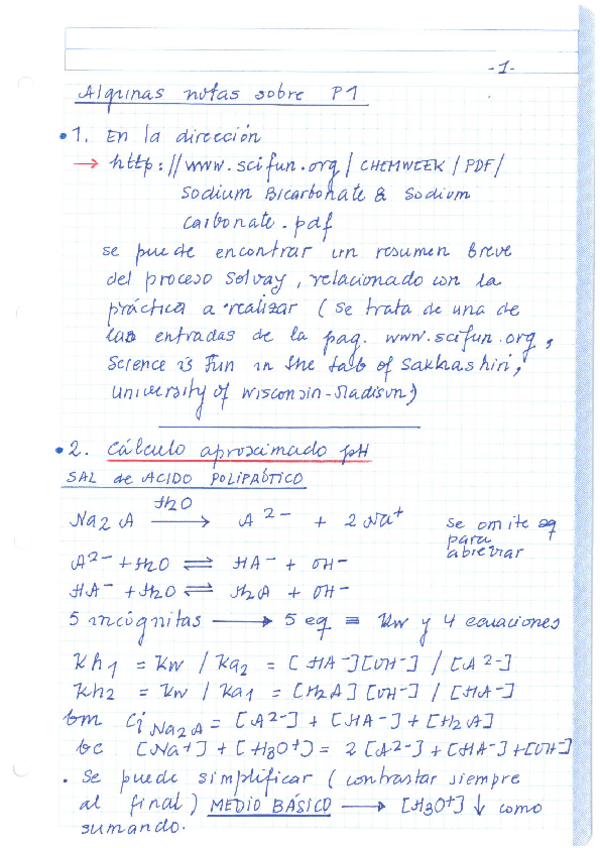 -1-
Algunas notas sobre P1
• 1. En la dirección
→ http://www.scifun.org/CHEMWEEK/PDF/
Sodium Bicarbonate & Sodium
Carbonate.pdf
se puede encontrar un resumen breve
del proceso Solvay, relacionado con la
práctica a realizar (se trata de una de
las entradas de la pag. www.scifun.org,
Science is Fun in the lab of Sakhashiri,
University of Wisconsin-Madison)
• 2. Cálculo aproximado pH
SAL de ACIDO POLIPRÓTICO
Na2A —H2O→ A2- + 2Na+ se omite aq
para
abreviar
A2- + H2O ⇌ HA- + OH-
HA- + H2O ⇌ H2A + OH-
5 incógnitas → 5 eq = Kw y 4 ecuaciones
Kh1 = Kw / Ka2 = [HA-][OH-] / [A2-]
Kh2 = Kw / Ka1 = [H2A][OH-] / [HA-]
bm Ci Na2A = [A2-] + [HA-] + [H2A]
bc [Na+] + [H3O+] = 2[A2-] + [HA-] + [OH-]
. Se puede simplificar (contrastar siempre
al final) MEDIO BÁSICO → [H3O+] ↓ como
sumando.